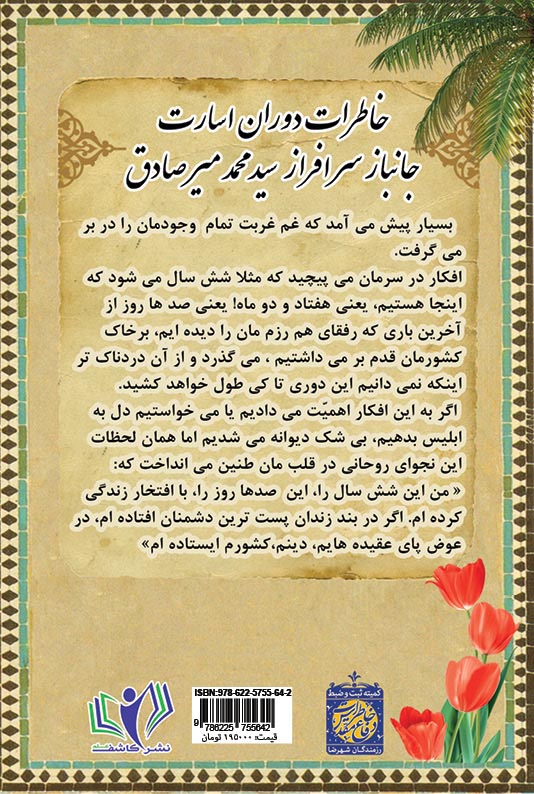 خاطرات دوران اسارت
جانباز سرافراز سید محمد میرصادق
بسیار پیش می آمد که غم غربت تمام وجودمان را در بر
می گرفت.
افکار در سرمان می پیچید که مثلا شش سال می شود که
اینجا هستیم، یعنی هفتاد و دو ماه! یعنی صد ها روز از
آخرین باری که رفقای هم رزم مان را دیده ایم، برخاک
کشورمان قدم بر می داشتیم ، می گذرد و از آن دردناک تر
اینکه نمی دانیم این دوری تا کی طول خواهد کشید.
اگر به این افکار اهمیّت می دادیم یا می خواستیم دل به
ابلیس بدهیم، بی شک دیوانه می شدیم اما همان لحظات
این نجوای روحانی در قلب مان طنین می انداخت که:
« من این شش سال را، این صدها روز را، با افتخار زندگی
کرده ام. اگر در بند زندان پست ترین دشمنان افتاده ام، در
عوض پای عقیده هایم، دینم،کشورم ایستاده ام»
ISBN:978-622-5755-64-2
9 786225 755642
قیمت: ۱۹۵۰۰۰ تومان
نشر کاشف
کمیته ثبت و ضبط
خاطرات
دفاع مقدس
رزمندگان شهرضا